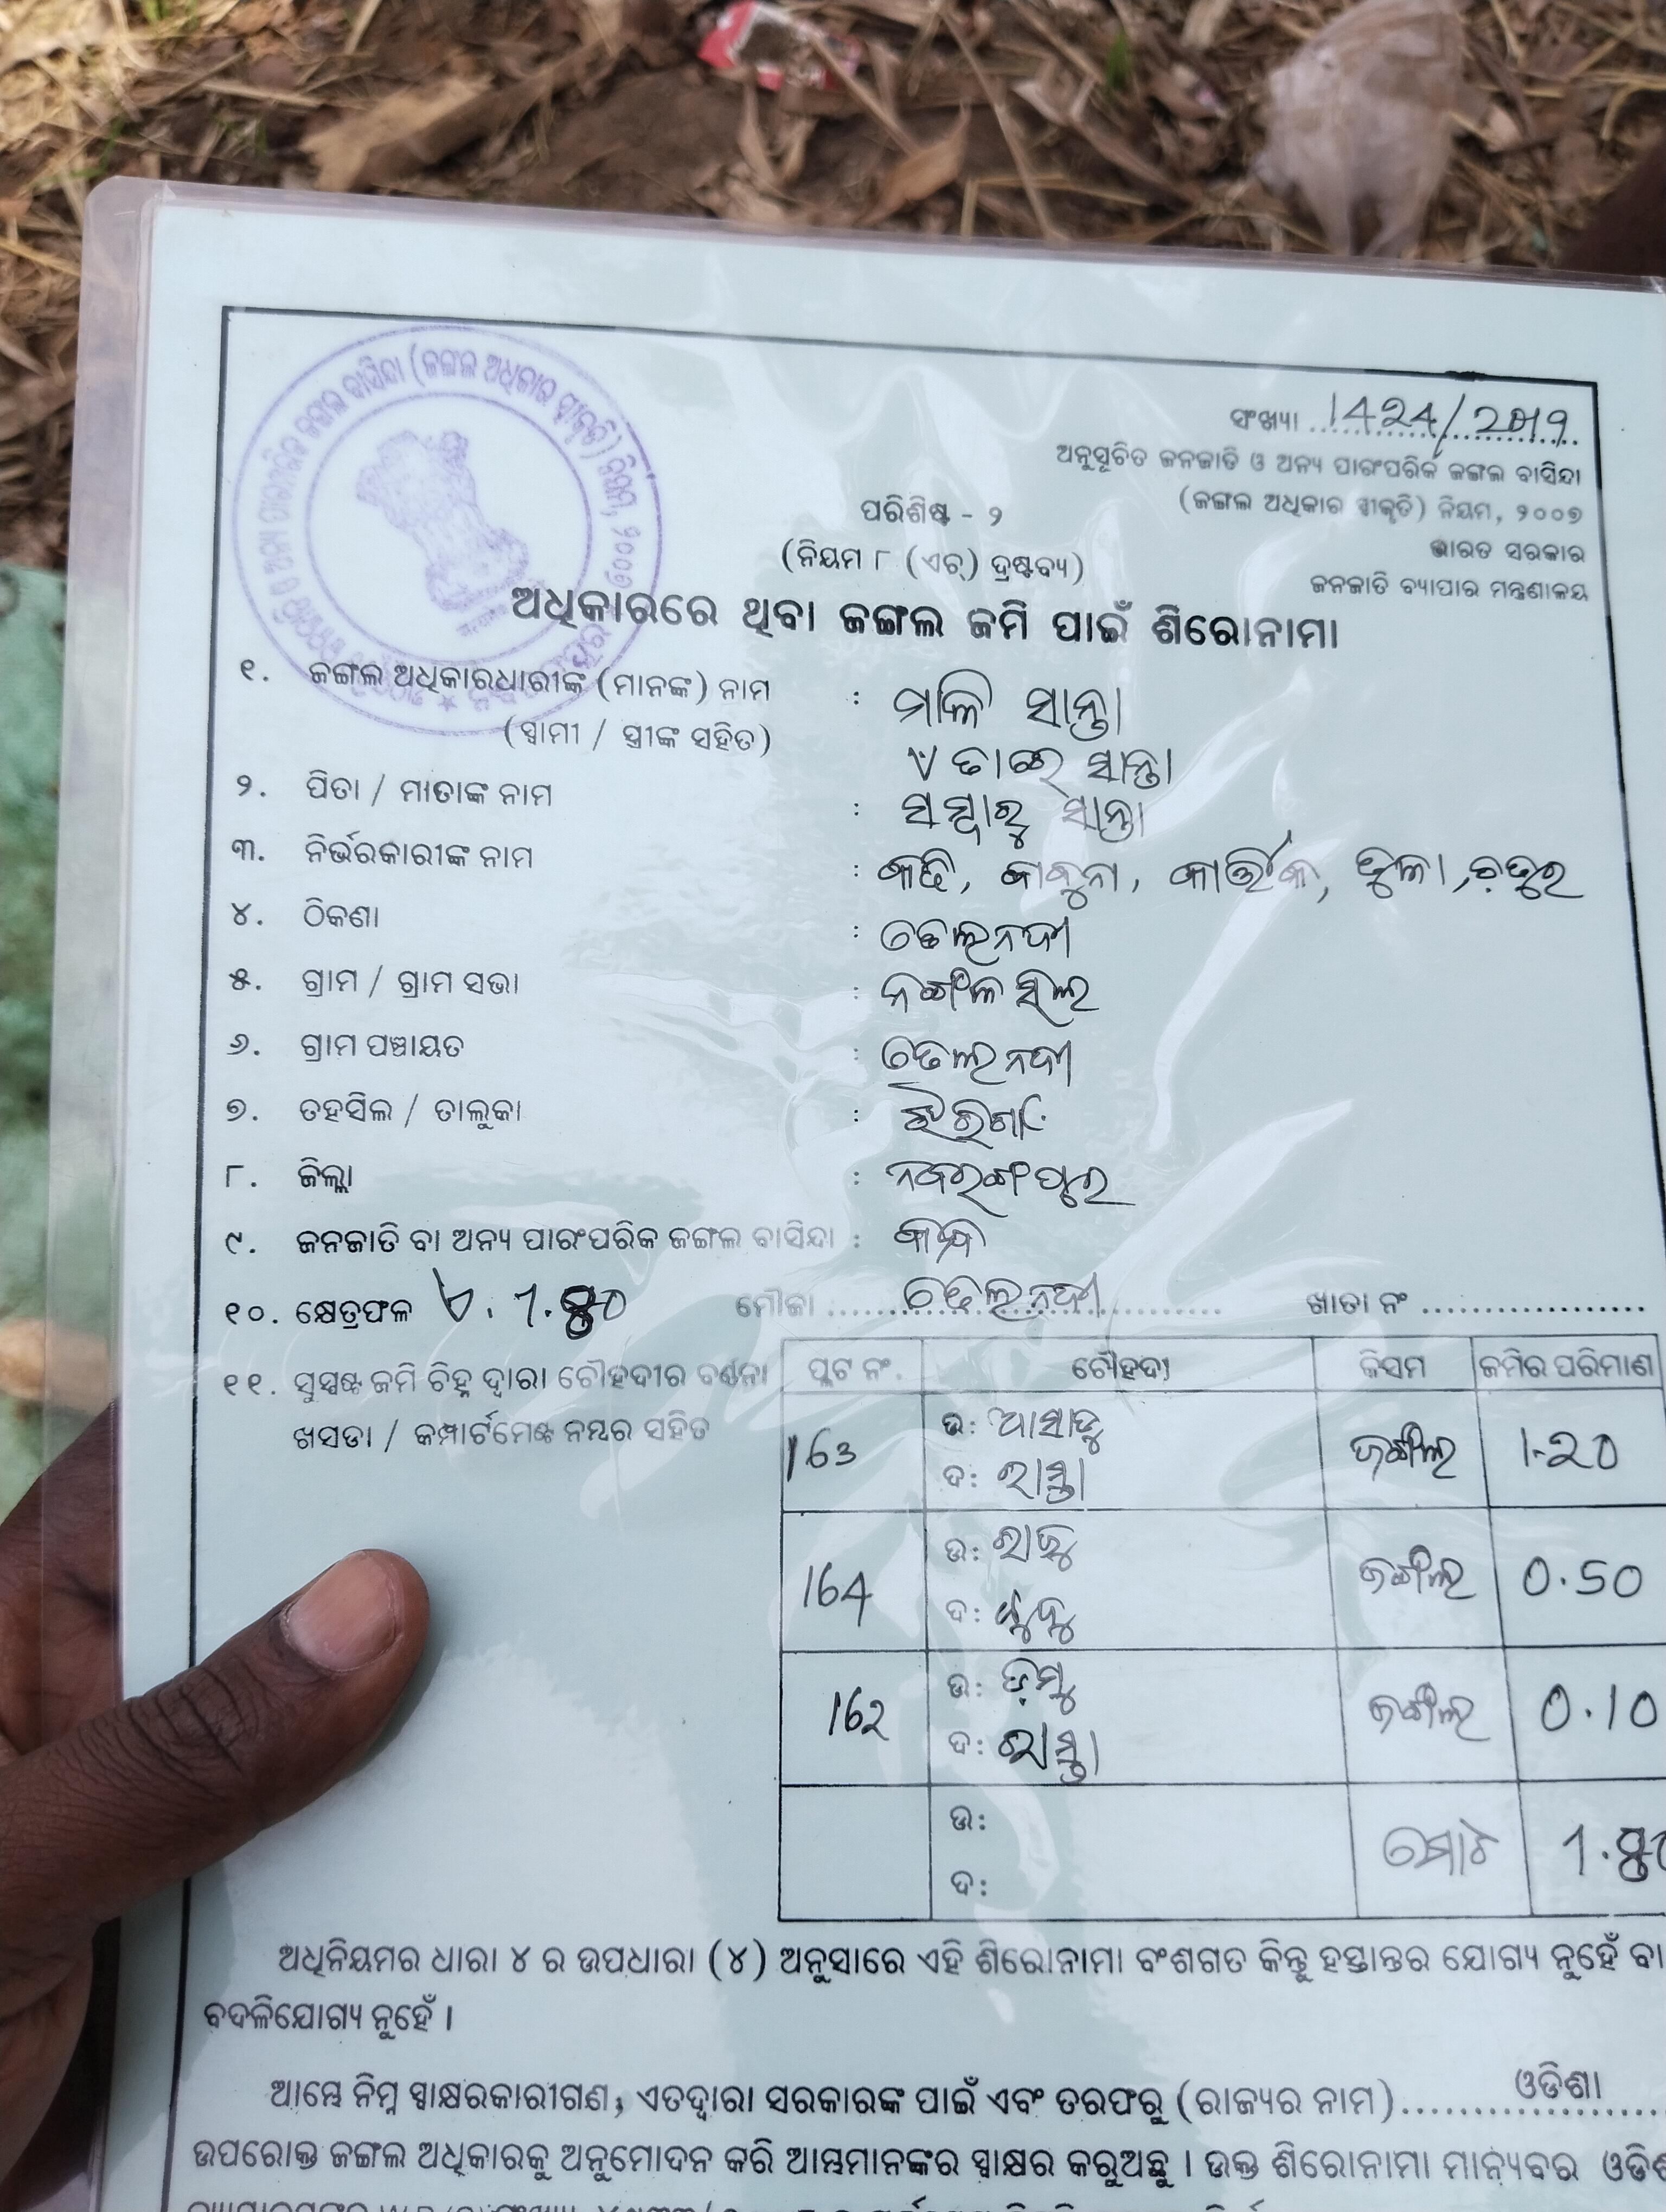 ସଂଖ୍ୟା 1424/2017
ଅନୁସୂଚିତ ଜନଜାତି ଓ ଅନ୍ୟ ପାରଂପରିକ ଜଙ୍ଗଲ ବାସିନ୍ଦା
(ଜଙ୍ଗଲ ଅଧିକାର ସ୍ୱୀକୃତି) ନିୟମ, ୨୦୦୭
ପରିଶିଷ୍ଟ - ୨
ଭାରତ ସରକାର
(ନିୟମ ୮ (ଏଚ୍) ଦ୍ରଷ୍ଟବ୍ୟ)
ଜନଜାତି ବ୍ୟାପାର ମନ୍ତ୍ରଣାଳୟ
ଅଧିକାରରେ ଥିବା ଜଙ୍ଗଲ ଜମି ପାଇଁ ଶିରୋନାମା
୧. ଜଙ୍ଗଲ ଅଧିକାରଧାରୀଙ୍କ (ମାନଙ୍କ) ନାମ : ମାଳି ସାନ୍ତା
(ସ୍ୱାମୀ / ସ୍ତ୍ରୀଙ୍କ ସହିତ) ସାନ୍ତା
୨. ପିତା / ମାତାଙ୍କ ନାମ : ସାନ୍ତା
୩. ନିର୍ଭରକାରୀଙ୍କ ନାମ : କାର୍ତ୍ତିକ,
୪. ଠିକଣା : ତେଲନଦୀ
୫. ଗ୍ରାମ / ଗ୍ରାମ ସଭା :
୬. ଗ୍ରାମ ପଞ୍ଚାୟତ : ତେଲନଦୀ
୭. ତହସିଲ / ତାଲୁକା : ଝରିଗାଁ
୮. ଜିଲ୍ଲା : ନବରଙ୍ଗପୁର
୯. ଜନଜାତି ବା ଅନ୍ୟ ପାରଂପରିକ ଜଙ୍ଗଲ ବାସିନ୍ଦା :
୧୦. କ୍ଷେତ୍ରଫଳ ଏ. 1.80 ମୌଜା ତେଲନଦୀ ଖାତା ନଂ
୧୧. ସୁସ୍ପଷ୍ଟ ଜମି ଚିହ୍ନ ଦ୍ୱାରା ଚୌହଦୀର ବର୍ଣ୍ଣନା
ଖସଡା / କମ୍ପାର୍ଟମେଣ୍ଟ ନମ୍ବର ସହିତ
ପ୍ଲଟ ନଂ. ଚୌହଦୀ କିସମ ଜମିର ପରିମାଣ
163 ଉ: ଆସାଡୁ ଜଙ୍ଗଲ 1-20
ଦ: ରାସ୍ତା
164 ଉ: ରାଜୁ ଜଙ୍ଗଲ 0.50
ଦ:
162 ଉ: ଡମ୍ବୁ ଜଙ୍ଗଲ 0.10
ଦ: ରାସ୍ତା
ଉ: ମୋଟ 1.80
ଦ:
ଅଧିନିୟମର ଧାରା ୪ ର ଉପଧାରା (୪) ଅନୁସାରେ ଏହି ଶିରୋନାମା ବଂଶଗତ କିନ୍ତୁ ହସ୍ତାନ୍ତର ଯୋଗ୍ୟ ନୁହେଁ ବା
ବଦଳିଯୋଗ୍ୟ ନୁହେଁ ।
ଆମ୍ଭେ ନିମ୍ନ ସ୍ୱାକ୍ଷରକାରୀଗଣ, ଏତଦ୍ୱାରା ସରକାରଙ୍କ ପାଇଁ ଏବଂ ତରଫରୁ (ରାଜ୍ୟର ନାମ) ଓଡିଶା
ଉପରୋକ୍ତ ଜଙ୍ଗଲ ଅଧିକାରକୁ ଅନୁମୋଦନ କରି ଆମ୍ଭମାନଙ୍କର ସ୍ୱାକ୍ଷର କରୁଅଛୁ । ଉକ୍ତ ଶିରୋନାମା ମାନ୍ୟବର